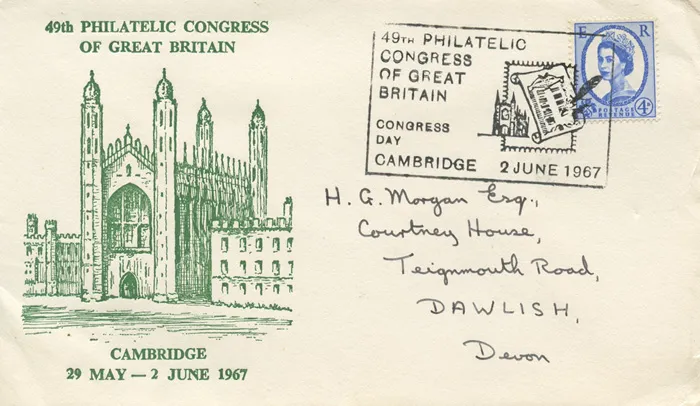 49th PHILATELIC CONGRESS
OF GREAT BRITAIN
CAMBRIDGE
29 MAY — 2 JUNE 1967
49TH PHILATELIC
CONGRESS
OF GREAT
BRITAIN
CONGRESS
DAY
CAMBRIDGE 2 JUNE 1967
E R
4D
POSTAGE
REVENUE
H. G. Morgan Esq.,
Courtney House,
Teignmouth Road,
DAWLISH,
Devon